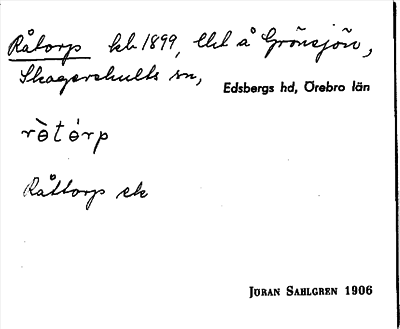 Råtorp kb 1899, ekl å Grönsjön,
Skagershults sn,
Edsbergs hd, Örebro län
rɵ̀tɵ́rp
Råttorp ek
JÖRAN SAHLGREN 1906